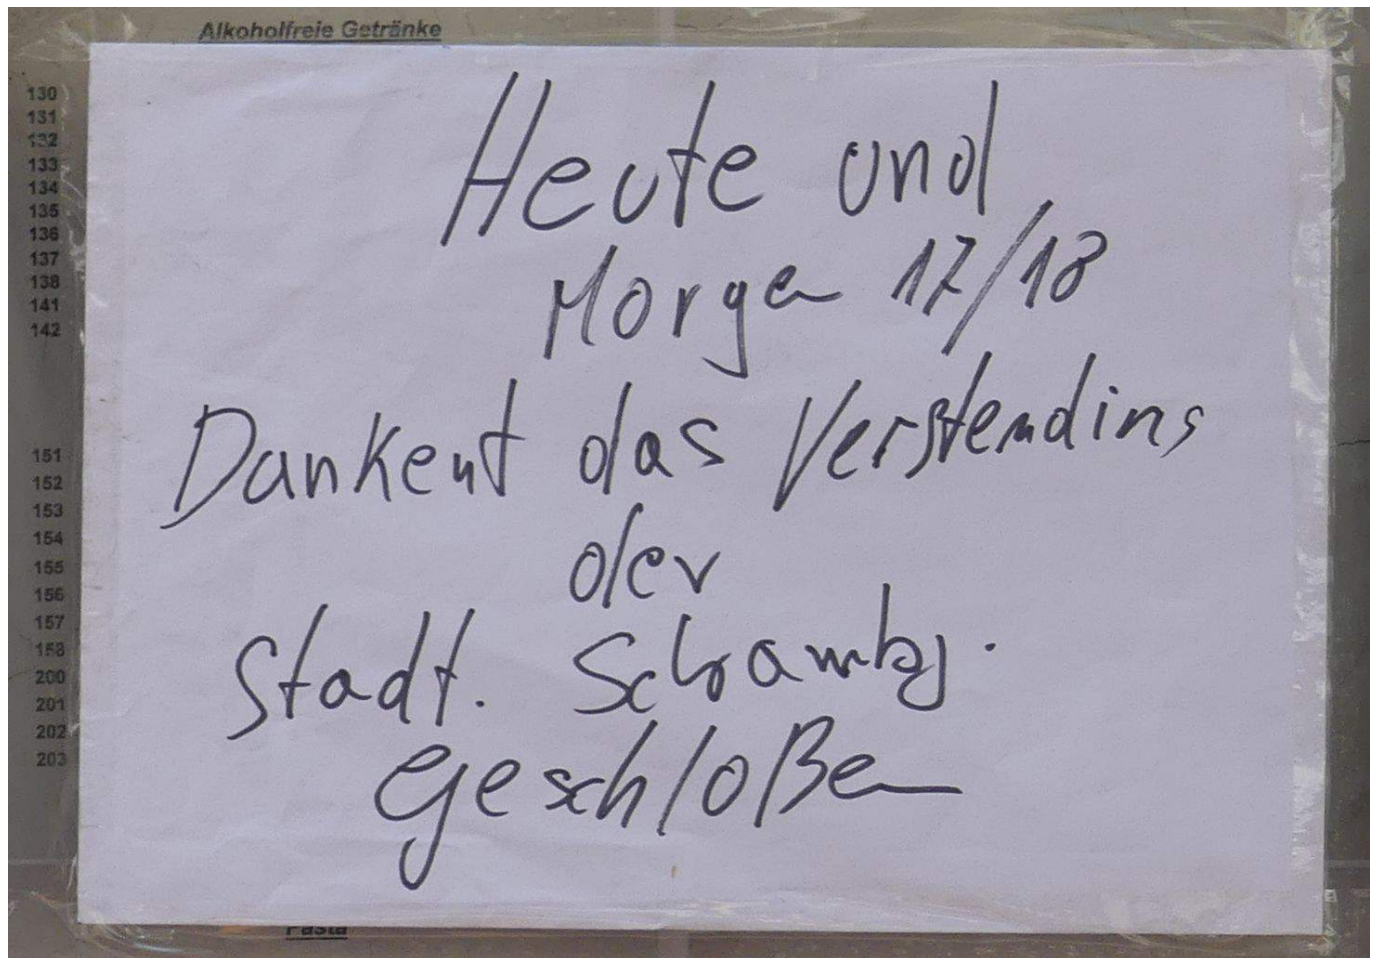 Alkoholfreie Getränke
130
131
132
133
134
135
136
137
138
141
142
151
152
153
154
155
156
157
158
200
201
202
203
Heute und
Morgen 17/18
Dankend das Verstendins
der
Stadt. Schrambg.
geschloßen
Pasta